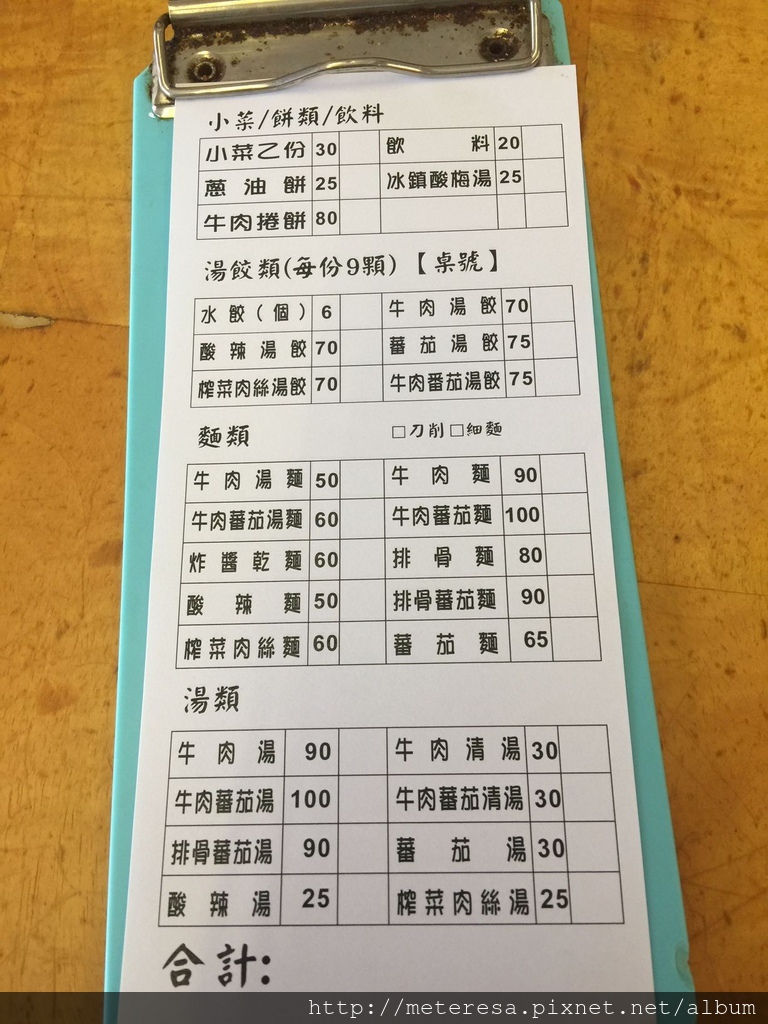 小菜/餅類/飲料
小菜乙份 30 飲料 20
蔥油餅 25 冰鎮酸梅湯 25
牛肉捲餅 80
湯餃類(每份9顆)【桌號】
水餃(個) 6 牛肉湯餃 70
酸辣湯餃 70 蕃茄湯餃 75
榨菜肉絲湯餃 70 牛肉番茄湯餃 75
麵類 □刀削 □細麵
牛肉湯麵 50 牛肉麵 90
牛肉蕃茄湯麵 60 牛肉蕃茄麵 100
炸醬乾麵 60 排骨麵 80
酸辣麵 50 排骨蕃茄麵 90
榨菜肉絲麵 60 蕃茄麵 65
湯類
牛肉湯 90 牛肉清湯 30
牛肉蕃茄湯 100 牛肉蕃茄清湯 30
排骨蕃茄湯 90 蕃茄湯 30
酸辣湯 25 榨菜肉絲湯 25
合計:
http://meteresa.pixnet.net/album